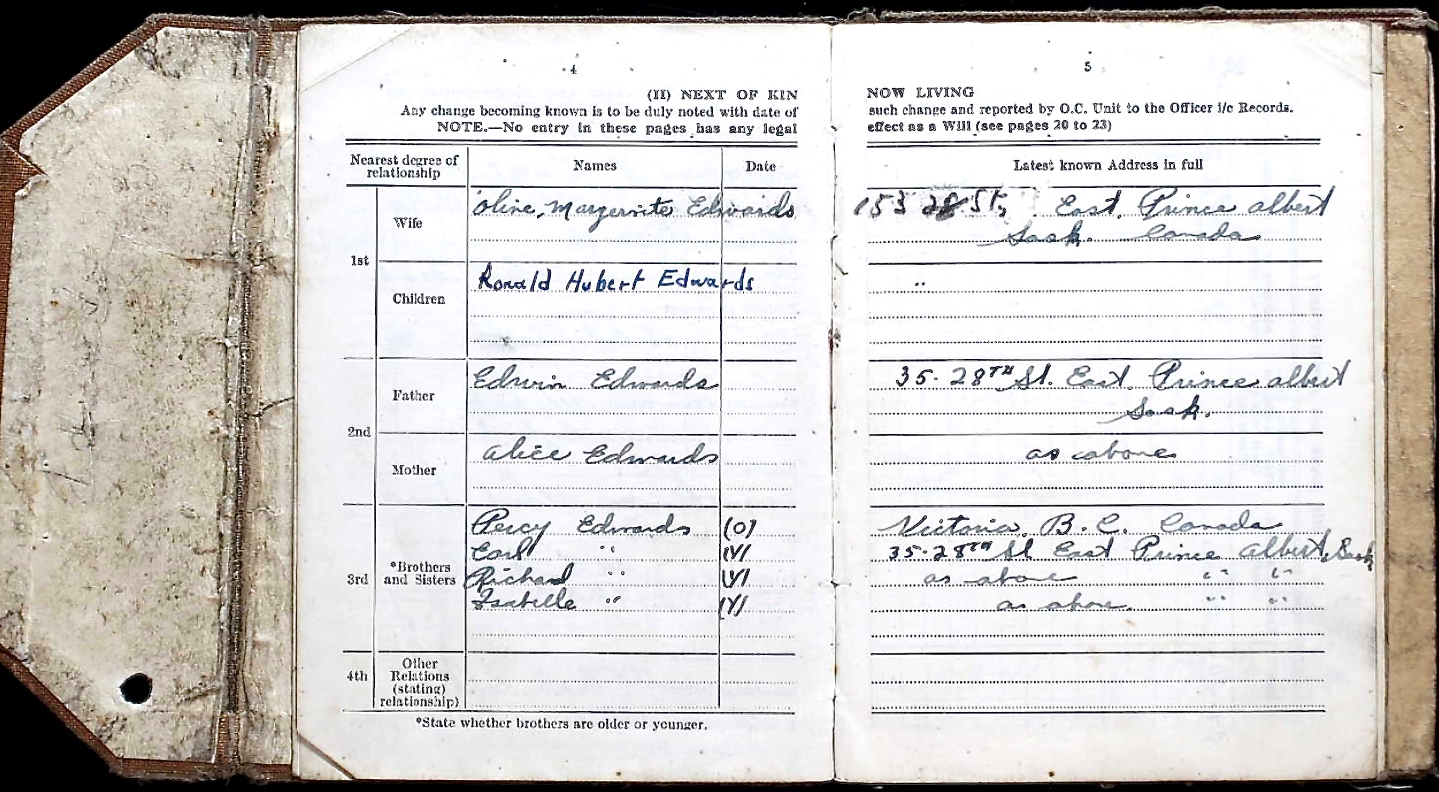 4
(II) NEXT OF KIN
Any change becoming known is to be duly noted with date of
NOTE.—No entry in these pages has any legal
Nearest degree of relationship
Names
Date
1st
Wife
Olive, Marguerite Edwards
Children
Ronald Hubert Edwards
2nd
Father
Edwin Edwards
Mother
Alice Edwards
3rd
*Brothers
and Sisters
Percy Edwards (O)
Earl " (Y)
Richard " (Y)
Isabelle " (Y)
4th
Other
Relations
(stating)
relationship)
*State whether brothers are older or younger.
5
NOW LIVING
such change and reported by O.C. Unit to the Officer i/c Records.
effect as a Will (see pages 20 to 23)
Latest known Address in full
153 28 St, East, Prince albert
Sask. Canada
"
35-28TH St. East, Prince albert
Sask.
as above
Victoria, B.C. Canada
35-28TH St East Prince albert, Sask
as above " "
as above. " "